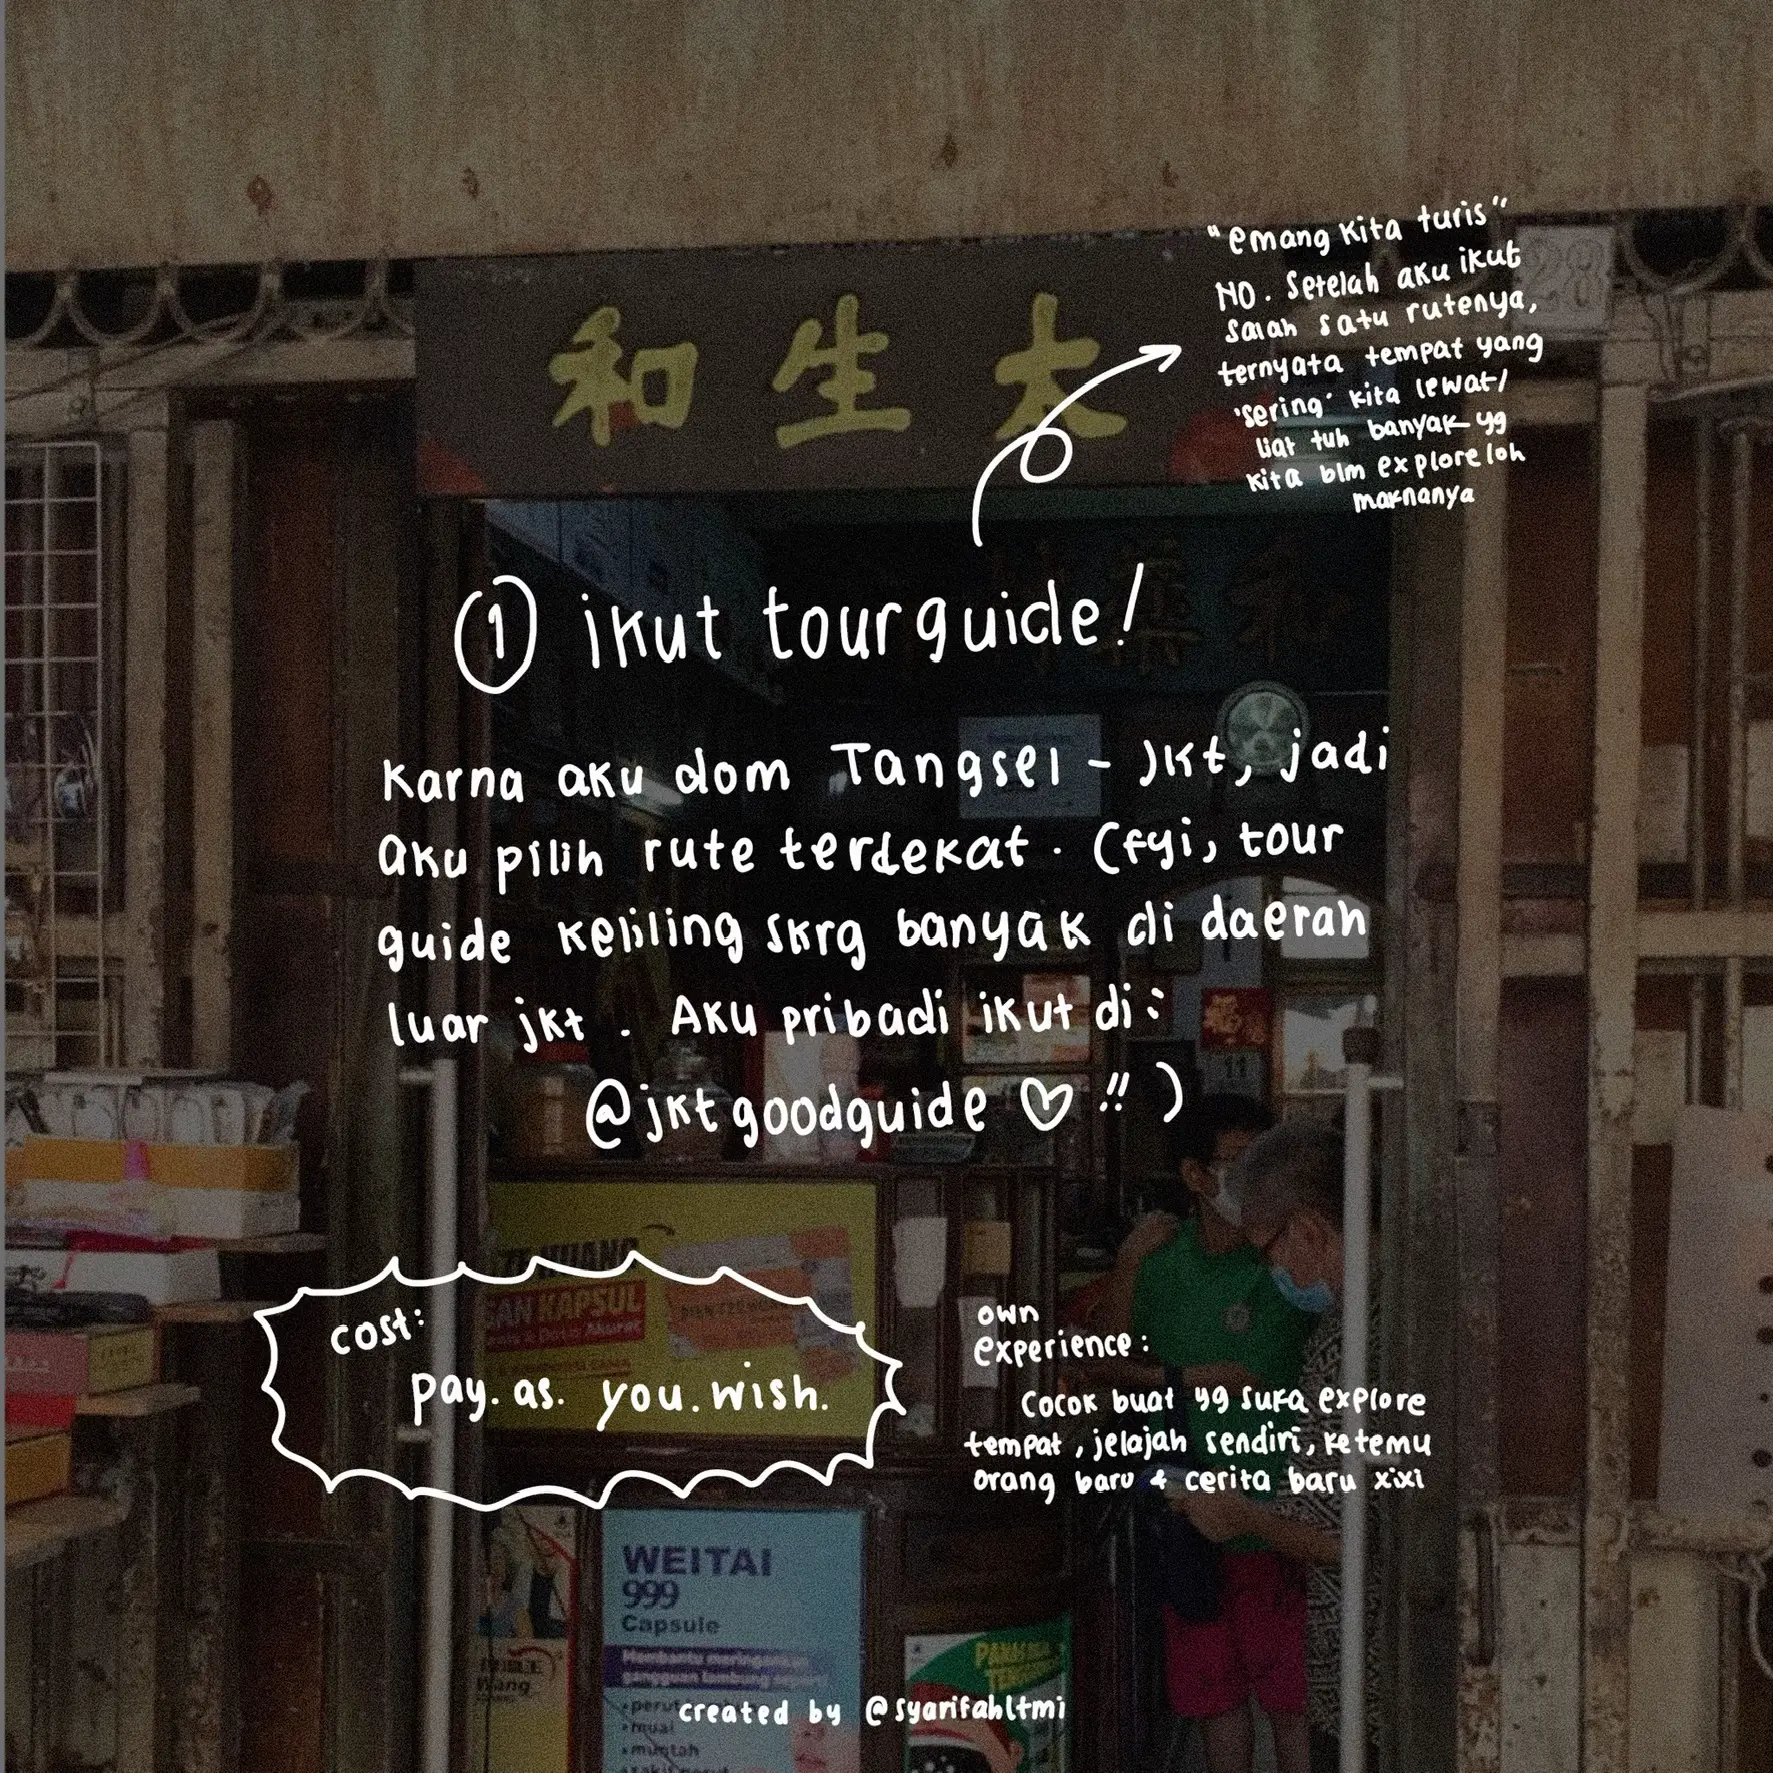 "emang kita turis"
NO. Setelah aku ikut
salah satu rutenya,
ternyata tempat yang
'sering' kita lewat/
liat tuh banyak yg
kita blm explore loh
maknanya
和生大
① ikut tour guide!
Karna aku dom Tangsel - Jkt, jadi
aku pilih rute terdekat. (fyi, tour
guide keliling skrg banyak di daerah
luar jkt. Aku pribadi ikut di:
@jktgoodguide ♡ !! )
cost:
pay. as. you. wish.
own
experience:
Cocok buat yg suka explore
tempat, jelajah sendiri, ketemu
orang baru & cerita baru xixi
KAPSUL
11
WEITAI
999
Capsule
Membantu meringankan
gangguan lambung seperti
• perut
• mual
• muntah
created by @syarifahltmi